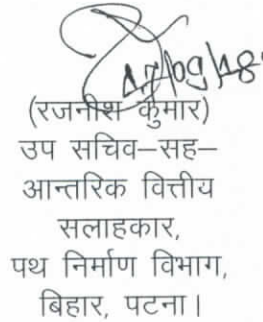 17/09/18
(रजनीश कुमार)
उप सचिव–सह–
आन्तरिक वित्तीय
सलाहकार,
पथ निर्माण विभाग,
बिहार, पटना।